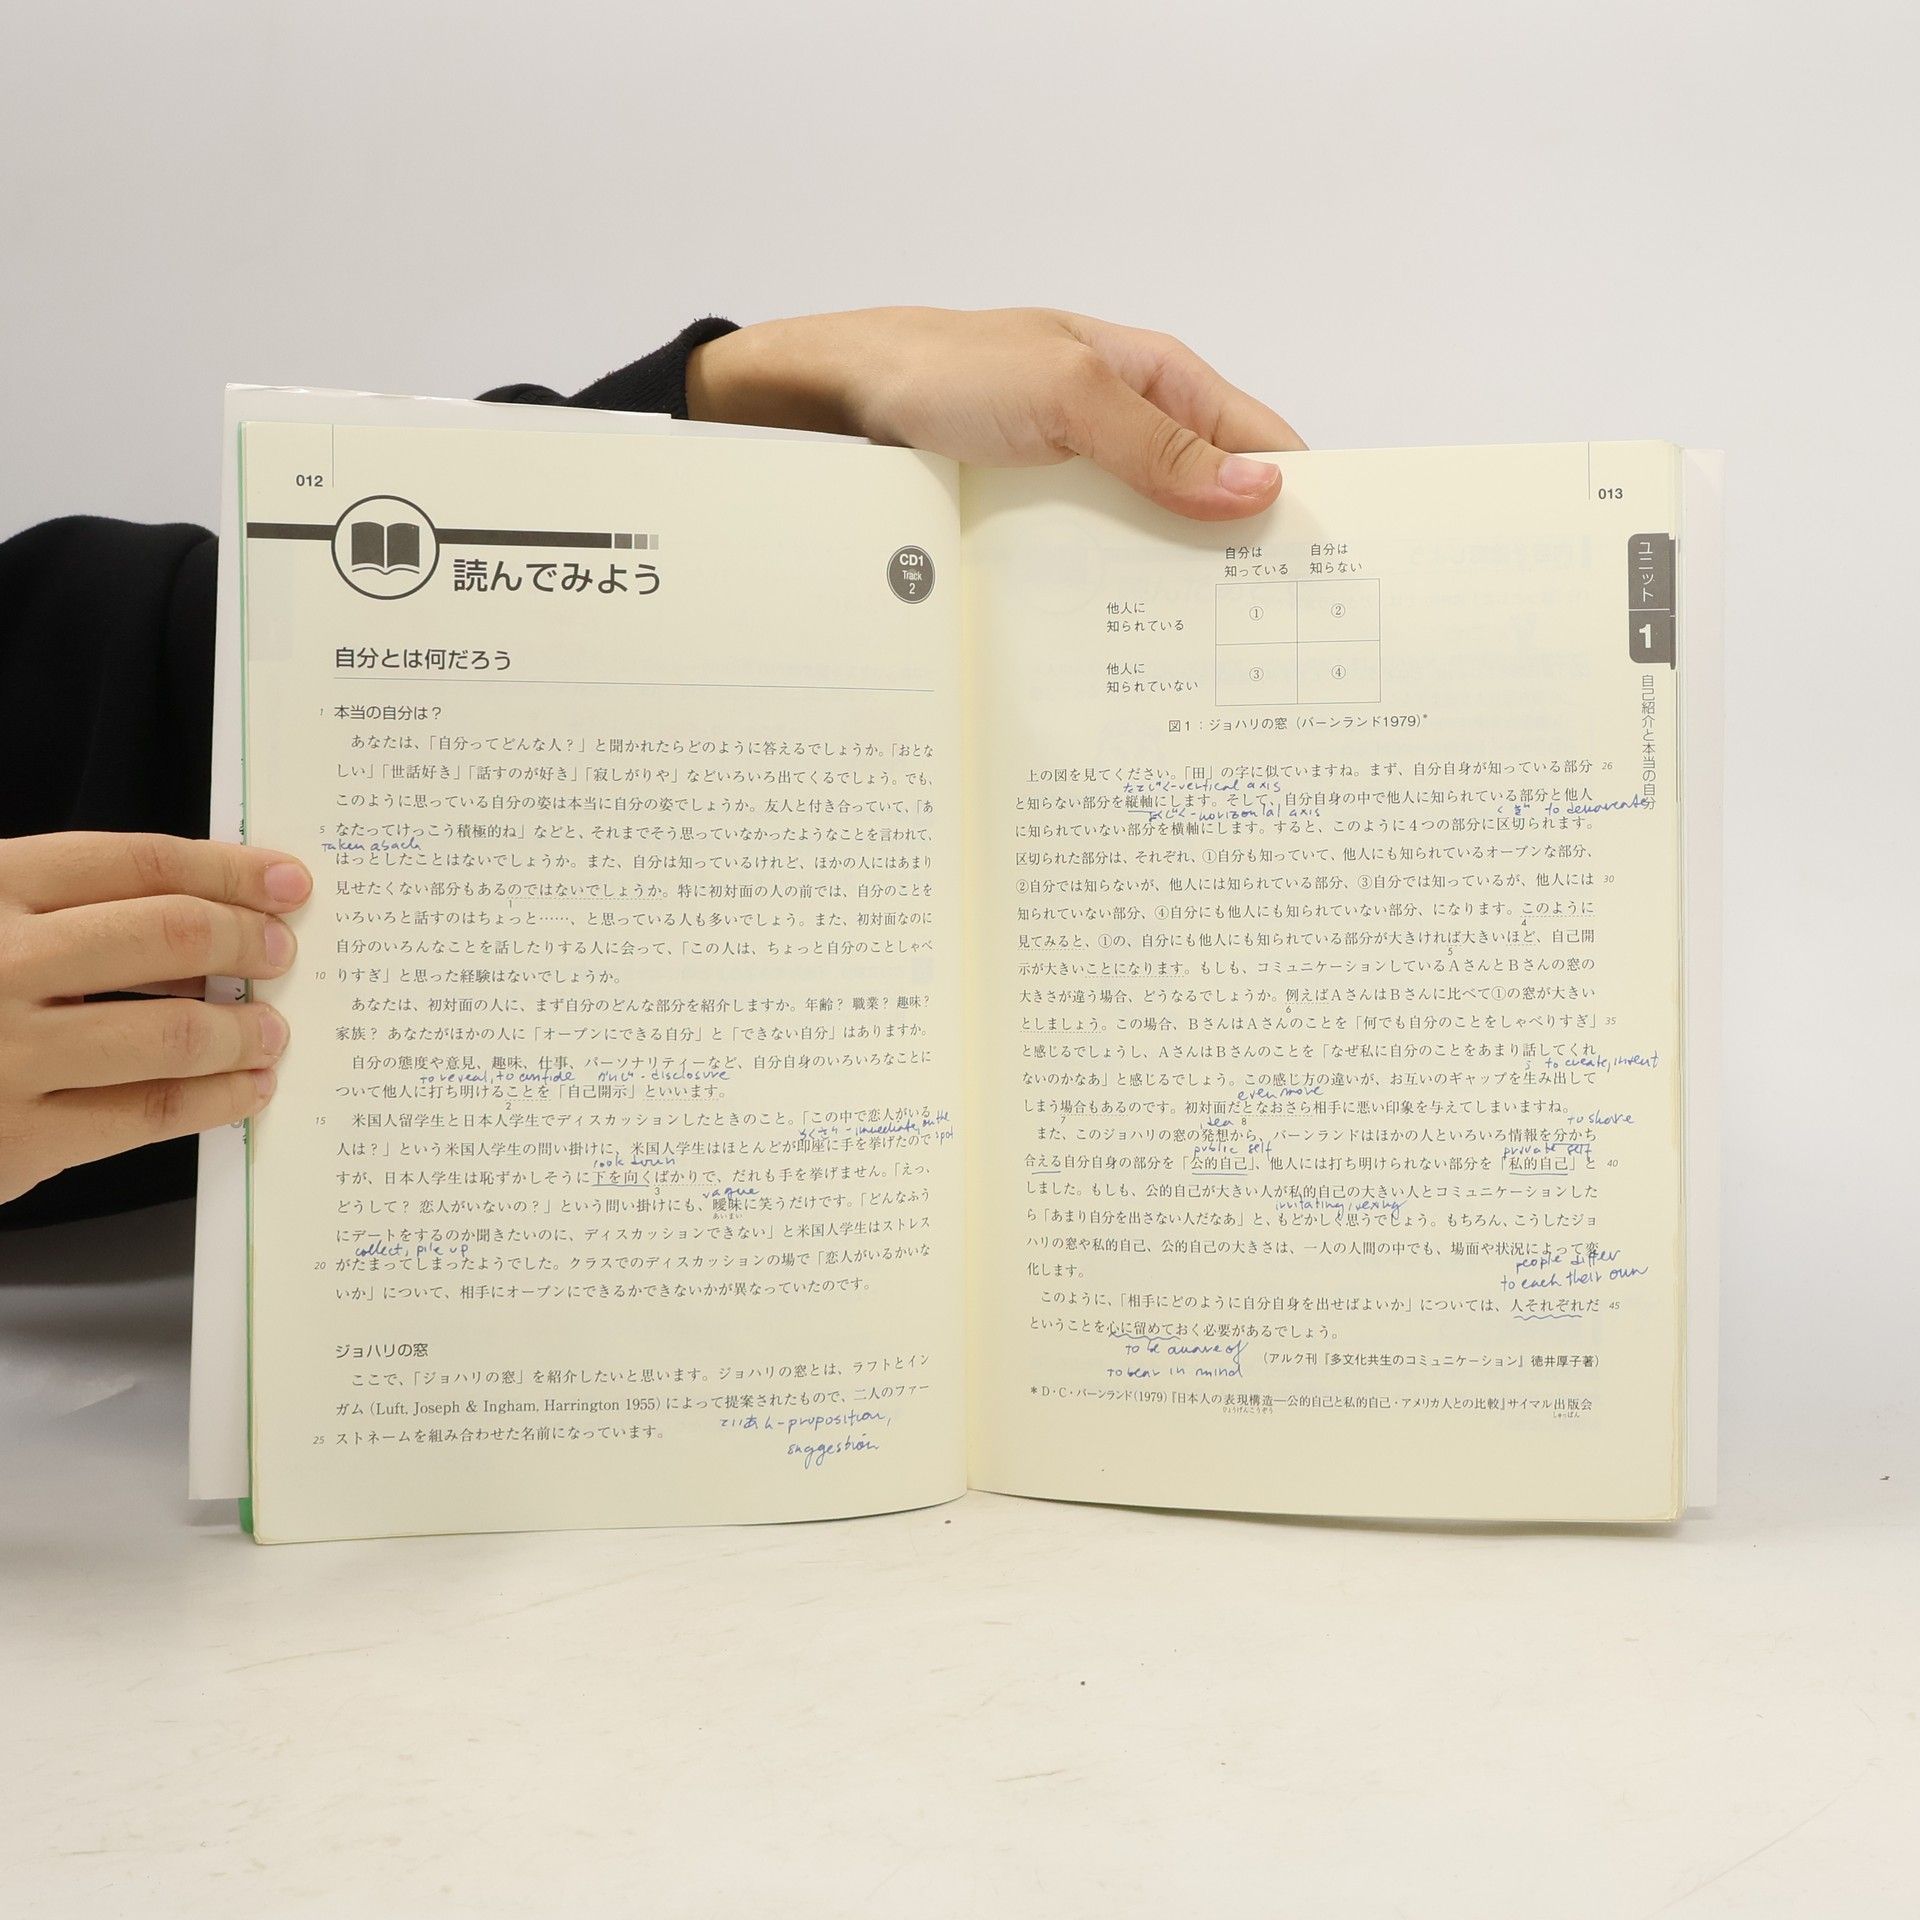 012
読んでみよう
CD1
Track
2
自分とは何だろう
1 本当の自分は？
あなたは、「自分ってどんな人？」と聞かれたらどのように答えるでしょうか。「おとな
しい」「世話好き」「話すのが好き」「寂しがりや」などいろいろ出てくるでしょう。でも、
このように思っている自分の姿は本当に自分の姿でしょうか。友人と付き合っていて、「あ
5 なたってけっこう積極的ね」などと、それまでそう思っていなかったようなことを言われて、
taken aback
はっとしたことはないでしょうか。また、自分は知っているけれど、ほかの人にはあまり
見せたくない部分もあるのではないでしょうか。特に初対面の人の前では、自分のことを
1
いろいろと話すのはちょっと……、と思っている人も多いでしょう。また、初対面なのに
自分のいろんなことを話したりする人に会って、「この人は、ちょっと自分のことしゃべ
10 りすぎ」と思った経験はないでしょうか。
あなたは、初対面の人に、まず自分のどんな部分を紹介しますか。年齢？ 職業？ 趣味？
家族？ あなたがほかの人に「オープンにできる自分」と「できない自分」はありますか。
自分の態度や意見、趣味、仕事、パーソナリティーなど、自分自身のいろいろなことに
to reveal, to confide かいじ - disclosure
ついて他人に打ち明けることを「自己開示」といいます。
2
15 米国人留学生と日本人学生でディスカッションしたときのこと。「この中で恋人がいる
そくざ - immediate, on the spot
人は？」という米国人学生の問い掛けに、米国人学生はほとんどが即座に手を挙げたので
look down
すが、日本人学生は恥ずかしそうに下を向くばかりで、だれも手を挙げません。「えっ、
3
vague
どうして？ 恋人がいないの？」という問い掛けにも、曖昧に笑うだけです。「どんなふう
あいまい
にデートをするのか聞きたいのに、ディスカッションできない」と米国人学生はストレス
collect, pile up
20 がたまってしまったようでした。クラスでのディスカッションの場で「恋人がいるかいな
いか」について、相手にオープンにできるかできないかが異なっていたのです。
ジョハリの窓
ここで、「ジョハリの窓」を紹介したいと思います。ジョハリの窓とは、ラフトとイン
ガム（Luft, Joseph & Ingham, Harrington 1955）によって提案されたもので、二人のファー
ていあん - proposition,
25 ストネームを組み合わせた名前になっています。
suggestion
013
ユニット
1
自己紹介と本当の自分
自分は 自分は
知っている 知らない
他人に
知られている
① ②
他人に
知られていない
③ ④
図1：ジョハリの窓（バーンランド1979）*
上の図を見てください。「田」の字に似ていますね。まず、自分自身が知っている部分 26
たてじく - vertical axis
と知らない部分を縦軸にします。そして、自分自身の中で他人に知られている部分と他人
よこじく - horizontal axis
to demarcate
に知られていない部分を横軸にします。すると、このように4つの部分に区切られます。
区切られた部分は、それぞれ、①自分も知っていて、他人にも知られているオープンな部分、
②自分では知らないが、他人には知られている部分、③自分では知っているが、他人には 30
知られていない部分、④自分にも他人にも知られていない部分、になります。このように
4
見てみると、①の、自分にも他人にも知られている部分が大きければ大きいほど、自己開
5
示が大きいことになります。もしも、コミュニケーションしているAさんとBさんの窓の
大きさが違う場合、どうなるでしょうか。例えばAさんはBさんに比べて①の窓が大きい
6
としましょう。この場合、BさんはAさんのことを「何でも自分のことをしゃべりすぎ」 35
と感じるでしょうし、AさんはBさんのことを「なぜ私に自分のことをあまり話してくれ
to create, invent
ないのかなあ」と感じるでしょう。この感じ方の違いが、お互いのギャップを生み出して
even more
しまう場合もあるのです。初対面だとなおさら相手に悪い印象を与えてしまいますね。
7 8
idea
to share
また、このジョハリの窓の発想から、バーンランドはほかの人といろいろ情報を分かち
public self private self
合える自分自身の部分を「公的自己」、他人には打ち明けられない部分を「私的自己」と 40
しました。もしも、公的自己が大きい人が私的自己の大きい人とコミュニケーションした
irritating, vexing
ら「あまり自分を出さない人だなあ」と、もどかしく思うでしょう。もちろん、こうしたジョ
ハリの窓や私的自己、公的自己の大きさは、一人の人間の中でも、場面や状況によって変
化します。
people differ
to each their own
このように、「相手にどのように自分自身を出せばよいか」については、人それぞれだ 45
ということを心に留めておく必要があるでしょう。
to be aware of
to bear in mind
（アルク刊『多文化共生のコミュニケーション』徳井厚子著）
* D・C・バーンランド(1979)『日本人の表現構造―公的自己と私的自己・アメリカ人との比較』サイマル出版会
ひょうげんこうぞう しゅっぱん